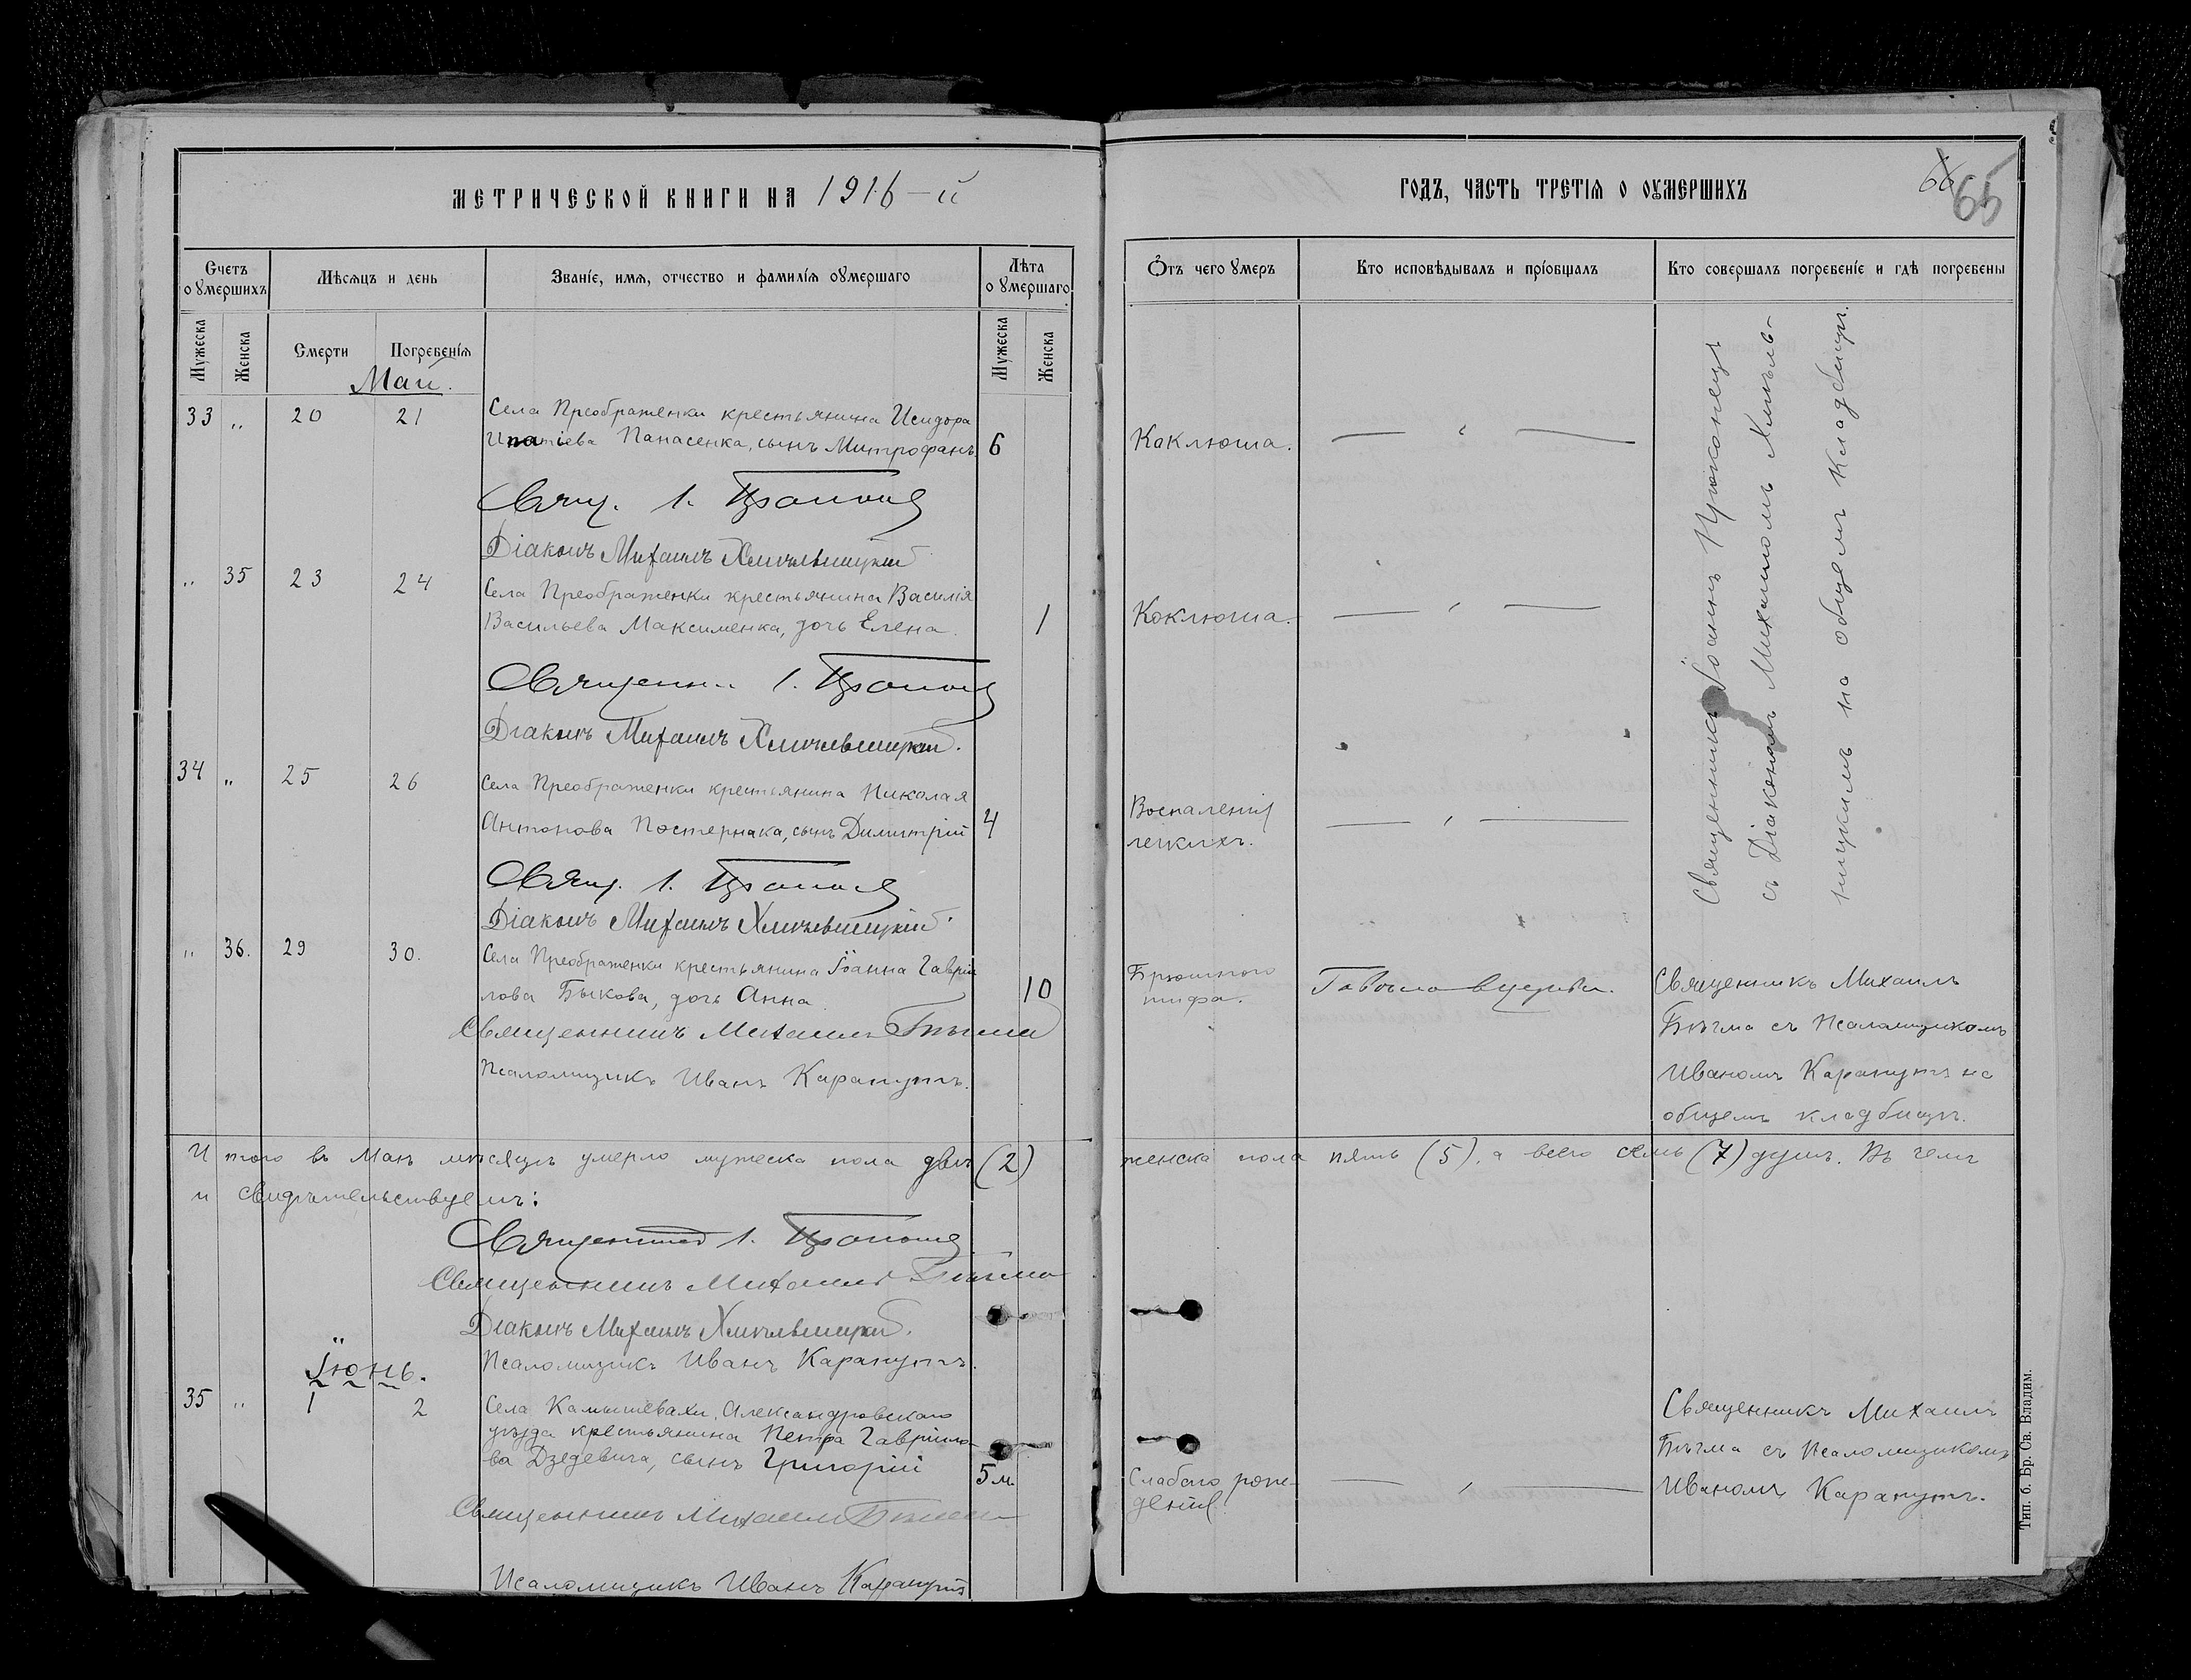 МЕТРИЧЕСКОЙ КНИГИ НА 1916-й
Счетъ оумершихъ
Мѣсяцъ и день
Званіе, имя, отчество и фамилія оумершаго
Лѣта оумершаго
Мужеска
Женска
Смерти
Погребенія
Мужеска
Женска
Май.
33 " 20 21 Села Преображенки крестьянина Исидора
Ипатіева Панасенка, сынъ Митрофанъ. 6
Свящ. І.
Діаконъ Михаилъ
" 35 23 24 Села Преображенки крестьянина Василія
Васильева Максименка, дочь Елена. 1
Священни І.
Діаконъ Михаилъ
34 " 25 26 Села Преображенки крестьянина Николая
Антонова Постернака, сынъ Димитрій 4
Свящ. І.
Діаконъ Михаилъ
" 36. 29 30. Села Преображенки крестьянина Іоанна Гаврі
лова Быкова, дочь Анна 10
Священникъ Михаилъ Бѣгма
Псаломщикъ Иванъ Карапутъ.
Итого въ Маѣ мѣсяцѣ умерло мужеска пола двѣ (2)
и свидѣтельствуемъ:
Священникъ І.
Священникъ Михаилъ Бѣгма
Діаконъ Михаилъ
Псаломщикъ Иванъ Карапутъ.
Іюнь.
35 " 1 2 Села Камышевахи, Александровскаго
уѣзда крестьянина Петра Гаврило-
ва Дзедевича, сынъ Григорій 5 м
Священникъ Михаилъ Бѣгма
Псаломщикъ Иванъ Карапутъ
ГОДЪ, ЧАСТЬ ТРЕТІЯ О ОУМЕРШИХЪ
66
65
Отъ чего умеръ
Кто исповѣдывалъ и пріобщалъ
Кто совершалъ погребеніе и гдѣ погребены
Коклюша. — " —
Коклюша. — " —
Воспаленія — " —
легкихъ.
Священникъ Іоаннъ
съ Діакономъ Михаиломъ
ницкимъ на общемъ кладбищѣ.
Брюшного
тифа.
Священникъ Михаилъ
Бѣгма съ Псаломщикомъ
Иваномъ Карапутъ на
общемъ кладбищѣ.
женска пола пять (5), а всего семь (7) душъ. Въ чемъ
Слабаго рож-
денія — " —
Священникъ Михаилъ
Бѣгма съ Псаломщикомъ
Иваномъ Карапутъ.
Тип. б. Бр. Св. Владим.